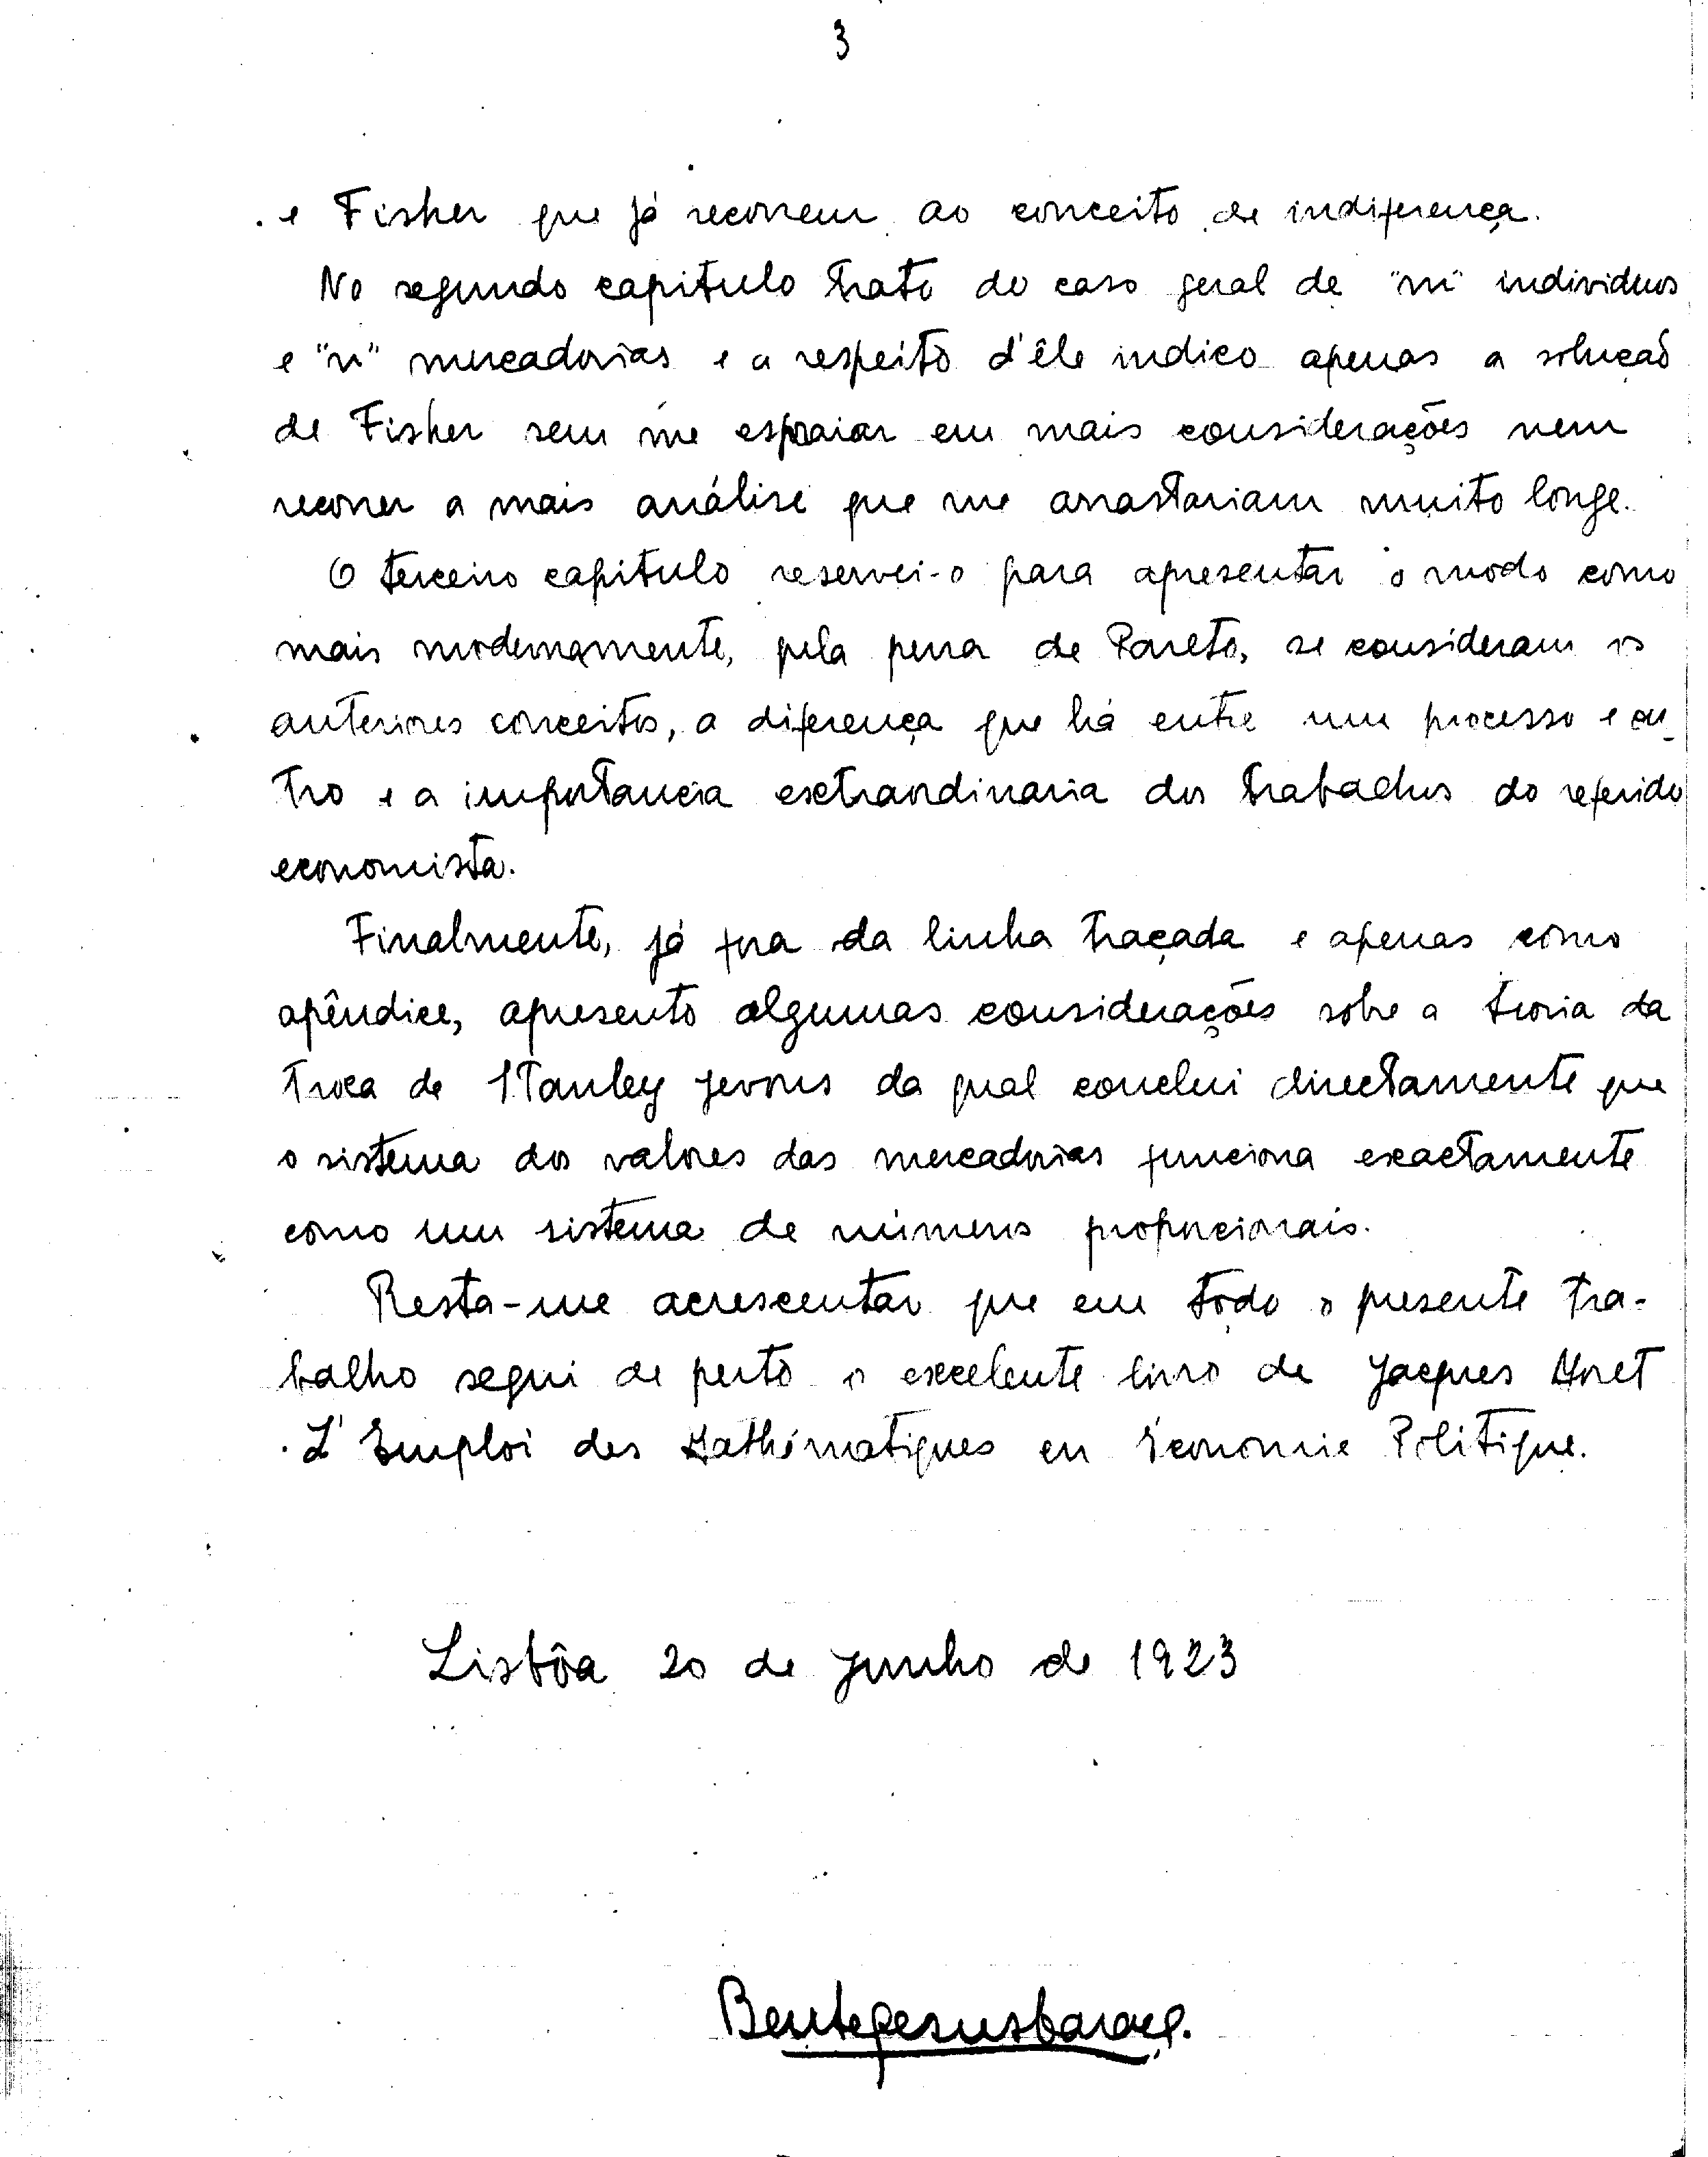 3
e Fisher que já recorrem ao conceito de indiferença.
No segundo capitulo trato do caso geral de "m" individuos
e "n" mercadorias e a respeito d'êle indico apenas a solução
de Fisher sem me espraiar em mais considerações nem
recorrer a mais análise que me arrastariam muito longe.
O terceiro capitulo reservei-o para apresentar o modo como
mais modernamente, pela pena de Pareto, se consideram os
anteriores conceitos, a diferença que há entre um processo e ou-
tro e a importancia extraordinaria dos trabalhos do referido
economista.
Finalmente, já fora da linha traçada e apenas como
apêndice, apresento algumas considerações sobre a teoria da
troca de Stanley Jevons da qual conclui directamente que
o sistema dos valores das mercadorias funciona exactamente
como um sistema de números proporcionais.
Resta-me acrescentar que em todo o presente tra-
balho segui de perto o excelente livro de Jacques Moret
L'Emploi des Mathématiques en Économie Politique.
Lisbôa 20 de Junho de 1923
Bento Jesus Caraça.